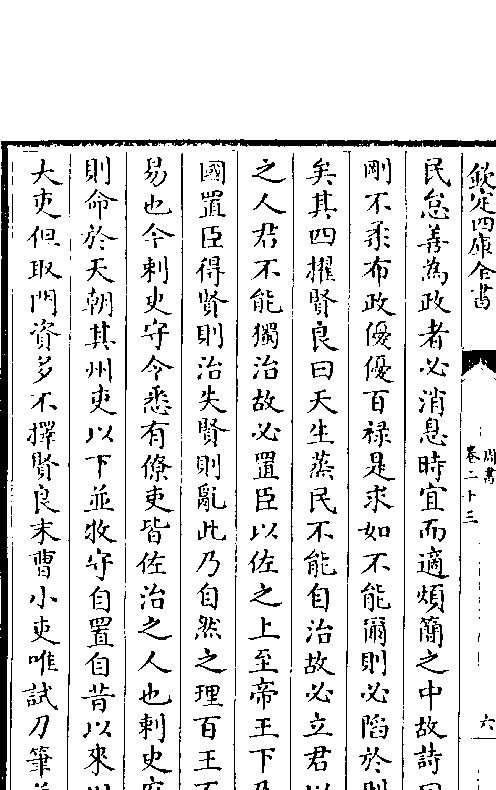 欽定四庫全書
周書
卷二十三
六
民怠善為政者必消息時宜而適煩簡之中故詩曰
剛不柔布政優優百祿是求如不能爾則必陷於刑
矣其四擢賢良曰天生蒸民不能自治故必立君以
之人君不能獨治故必置臣以佐之上至帝王下及
國置臣得賢則治失賢則亂此乃自然之理百王不
易也今刺史守令悉有僚吏皆佐治之人也刺史府
則命於天朝其州吏以下並牧守自置自昔以來州
大吏但取門資多不擇賢良末曹小吏唯試刀筆並